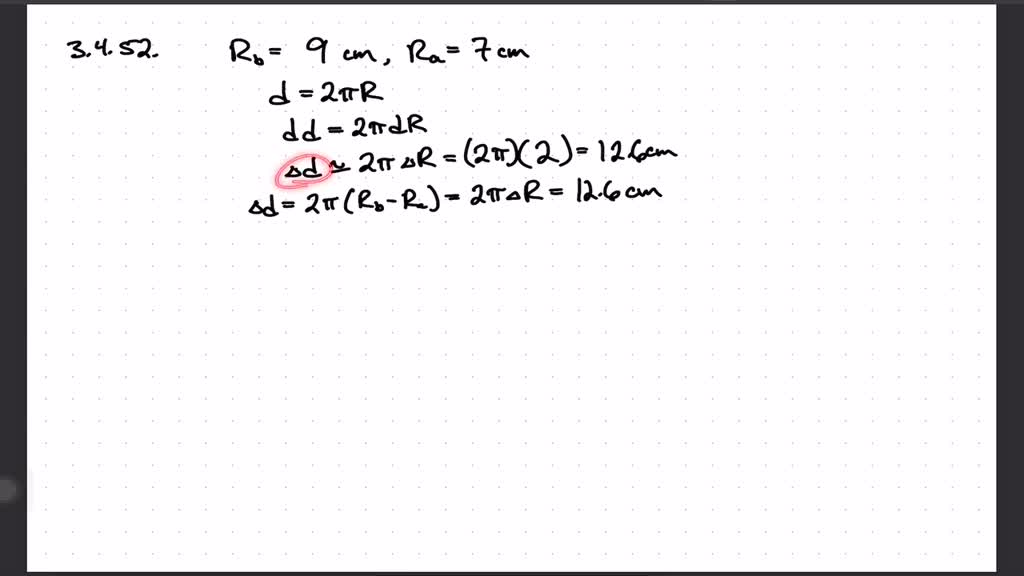 3.4.52. R_b = 9 cm, R_a = 7 cm
d = 2πR
dd = 2πdR
Δd ≃ 2π ΔR = (2π)(2) = 12.6cm
Δd = 2π(R_b - R_a) = 2πΔR = 12.6 cm